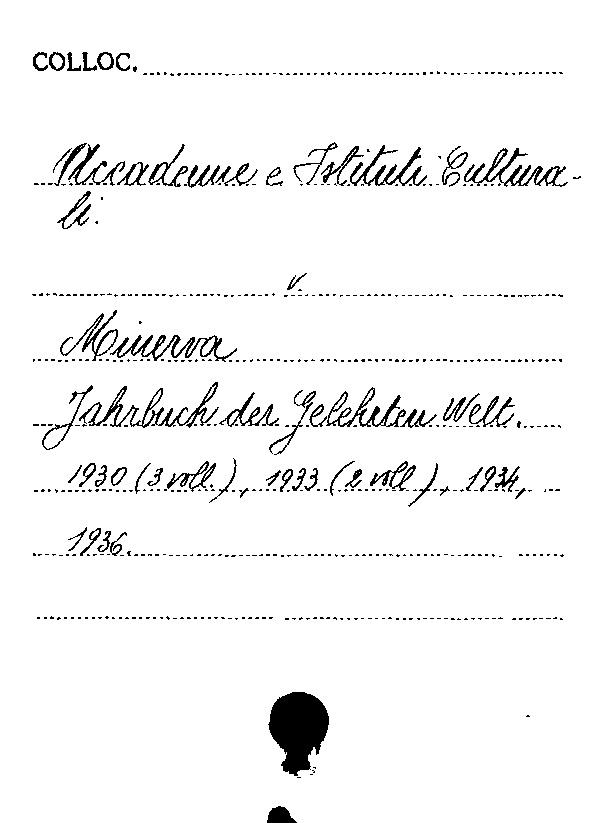 COLLOC.
Accademie e Istituti Cultura-
li.
v.
Minerva
Jahrbuch der Gelehrten Welt.
1930 (3 voll.), 1933 (2 voll), 1934,
1936.